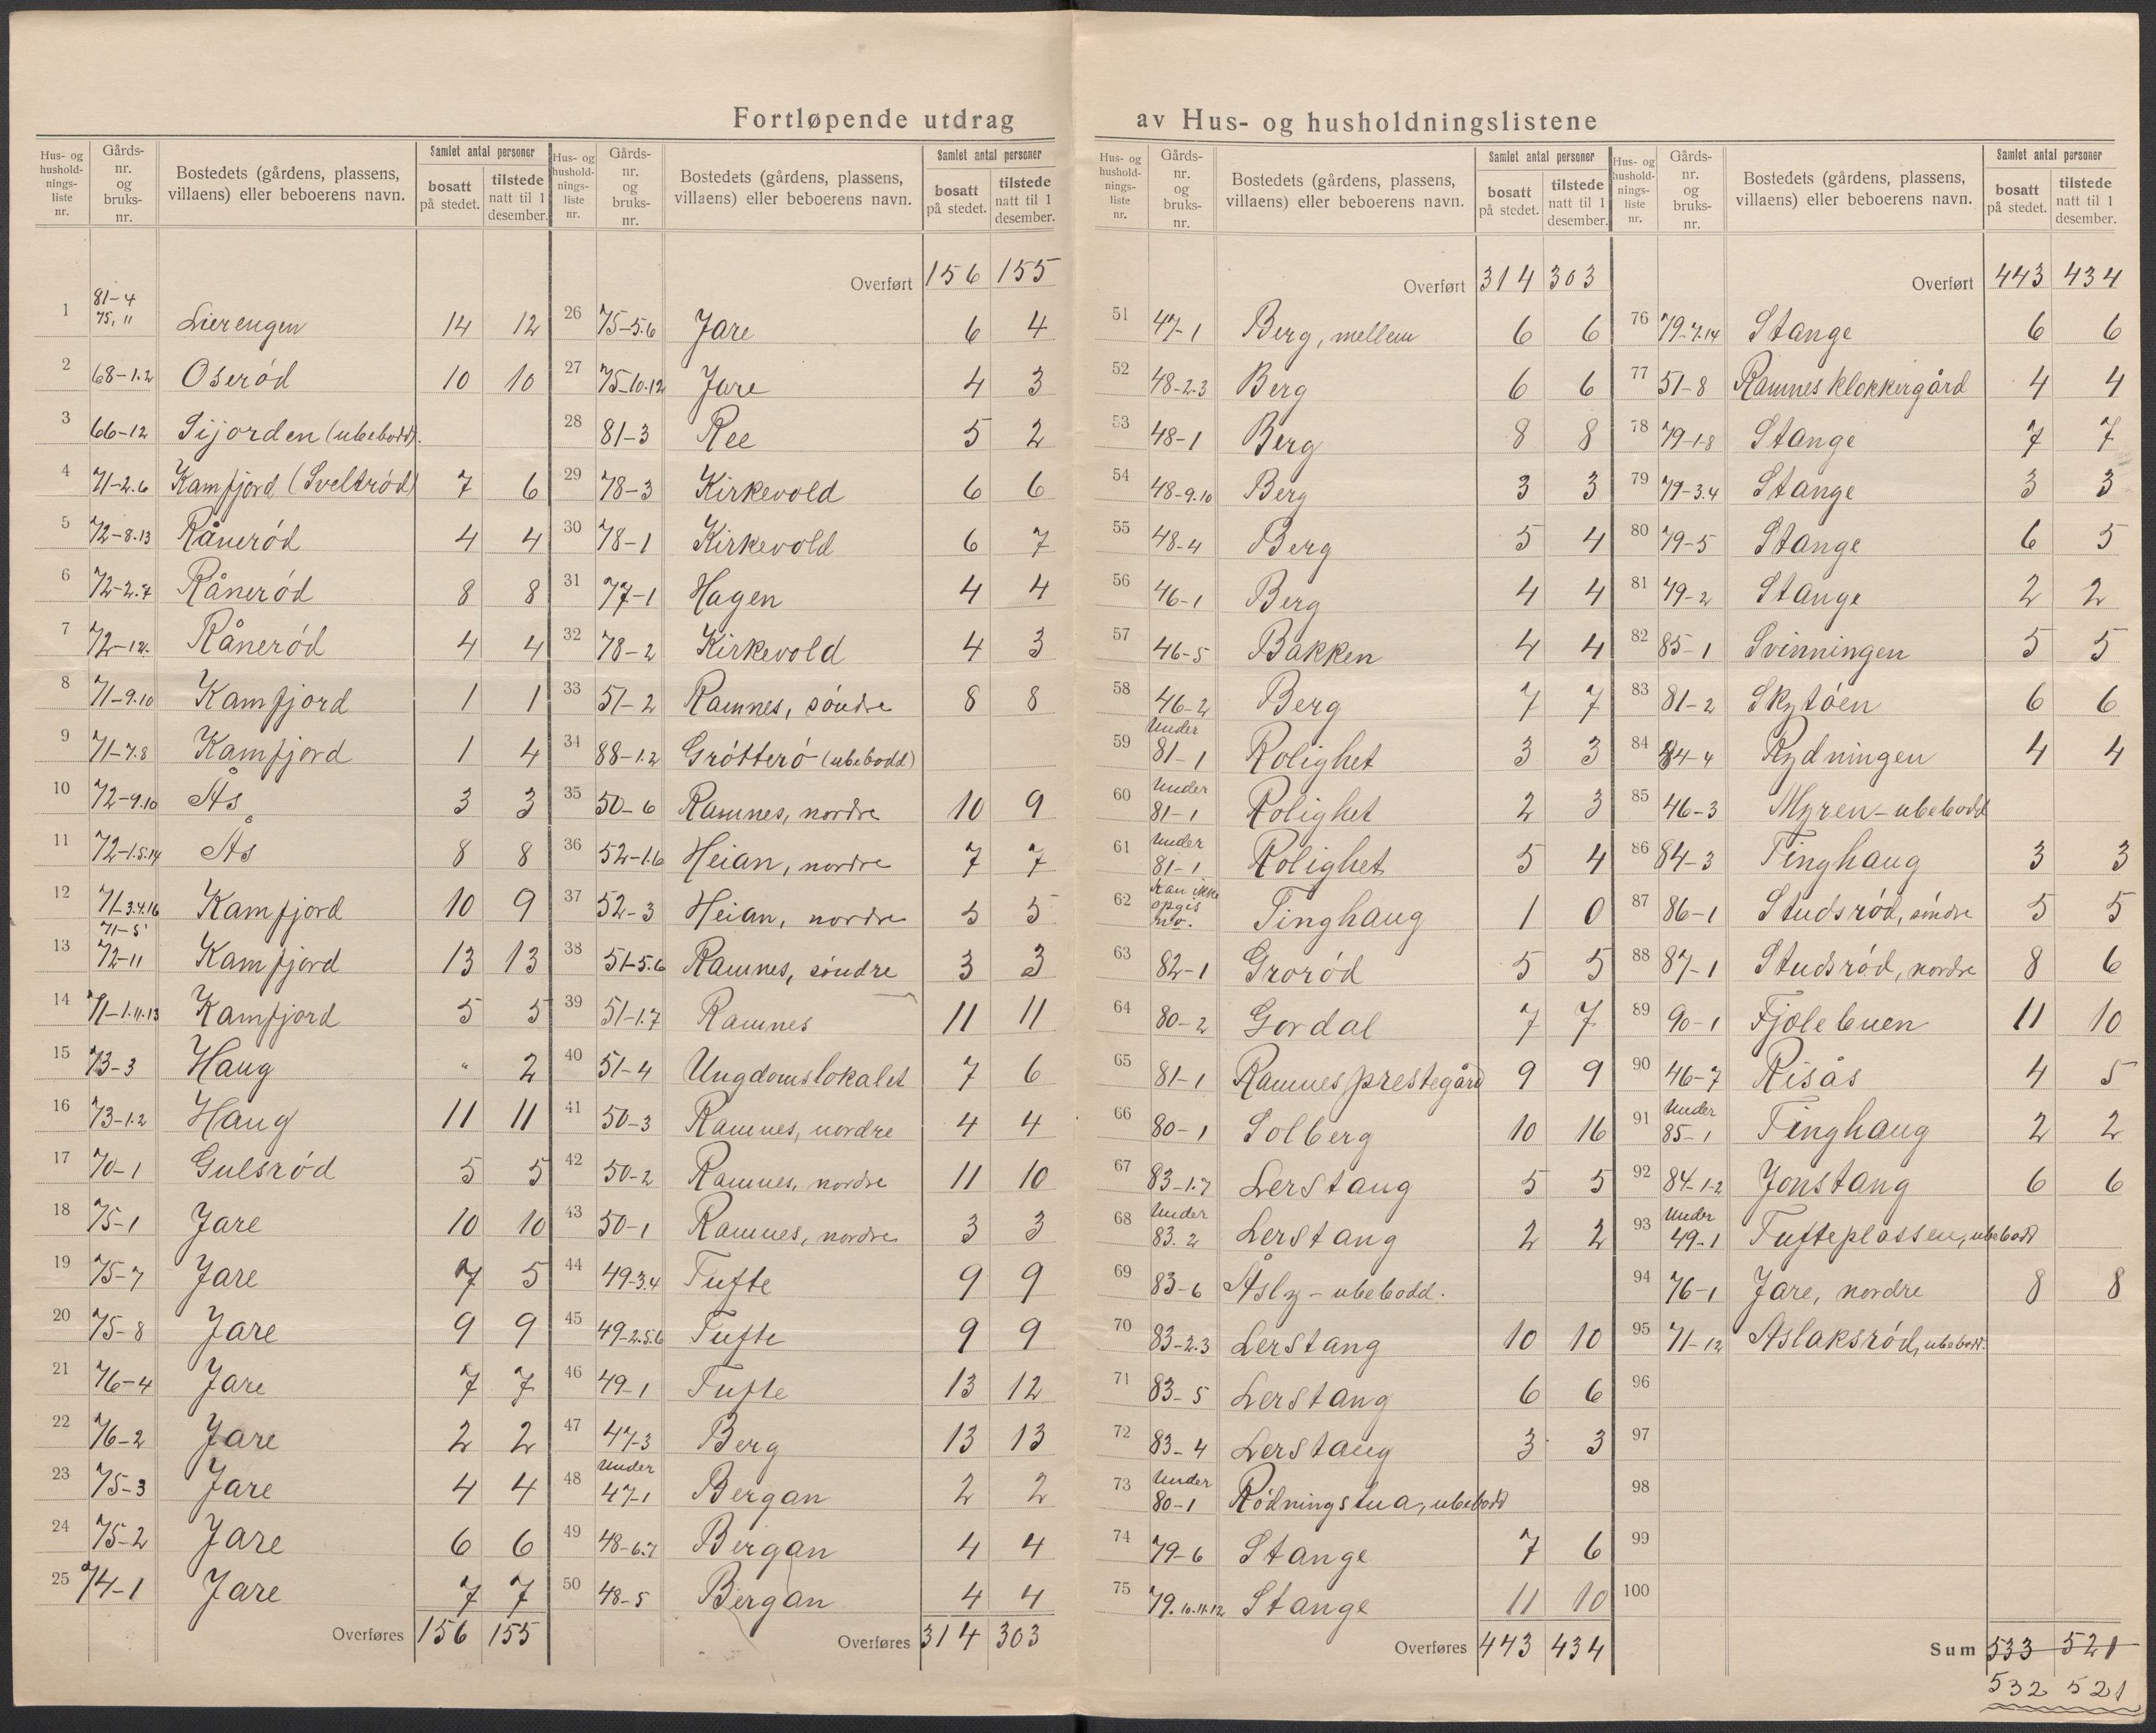 Fortløpende utdrag av Hus- og husholdningslistene
Hus- og husholdningsliste nr. | Gårdsnr. og bruksnr. | Bostedets (gårdens, plassens, villaens) eller beboerens navn. | Samlet antal personer bosatt på stedet. | tilstede natt til 1 desember.
1 81-4 75, 11 Lierengen 14 12
2 68-1.2 Oserød 10 10
3 66-12 Sijorden (ubebodd).
4 71-2.6 Kamfjord (Sveltrød) 7 6
5 72-8.13 Rånerød 4 4
6 72-2.7 Rånerød 8 8
7 72-12. Rånerød 4 4
8 71-9.10 Kamfjord 1 1
9 71-7.8 Kamfjord 1 4
10 72-9.10 Ås 3 3
11 72-1.5.14 Ås 8 8
12 71-3.4.16 Kamfjord 10 9
13 71-5 72-11 Kamfjord 13 13
14 71-1.11.13 Kamfjord 5 5
15 73-3 Haug " 2
16 73-1.2 Haug 11 11
17 70-1 Gulsrød 5 5
18 75-1 Jare 10 10
19 75-7 Jare 7 5
20 75-8 Jare 9 9
21 76-4 Jare 7 7
22 76-2 Jare 2 2
23 75-3 Jare 4 4
24 75-2 Jare 6 6
25 74-1 Jare 7 7
Overføres 156 155
Hus- og husholdningsliste nr. | Gårdsnr. og bruksnr. | Bostedets (gårdens, plassens, villaens) eller beboerens navn. | Samlet antal personer bosatt på stedet. | tilstede natt til 1 desember.
Overført 156 155
26 75-5.6 Jare 6 4
27 75-10.12 Jare 4 3
28 81-3 Ree 5 2
29 78-3 Kirkevold 6 6
30 78-1 Kirkevold 6 7
31 77-1 Hagen 4 4
32 78-2 Kirkevold 4 3
33 51-2 Ramnes, søndre 8 8
34 88-1.2 Grøtterø (ubebodd)
35 50-6 Ramnes, nordre 10 9
36 52-1.6 Heian, nordre 7 7
37 52-3 Heian, nordre 5 5
38 51-5.6 Ramnes, søndre 3 3
39 51-1.7 Ramnes 11 11
40 51-4 Ungdomslokalet 7 6
41 50-3 Ramnes, nordre 4 4
42 50-2 Ramnes, nordre 11 10
43 50-1 Ramnes, nordre 3 3
44 49-3.4 Tufte 9 9
45 49-2.5.6 Tufte 9 9
46 49-1 Tufte 13 12
47 47-3 Berg 13 13
48 Under 47-1 Bergan 2 2
49 48-6.7 Bergan 4 4
50 48-5 Bergan 4 4
Overføres 314 303
Hus- og husholdningsliste nr. | Gårdsnr. og bruksnr. | Bostedets (gårdens, plassens, villaens) eller beboerens navn. | Samlet antal personer bosatt på stedet. | tilstede natt til 1 desember.
Overført 314 303
51 47-1 Berg, mellem 6 6
52 48-2.3 Berg 6 6
53 48-1 Berg 8 8
54 48-9.10 Berg 3 3
55 48-4 Berg 5 4
56 46-1 Berg 4 4
57 46-5 Bakken 4 4
58 46-2 Berg 7 7
59 Under 81-1 Rolighet 3 3
60 Under 81-1 Rolighet 2 3
61 Under 81-1 Rolighet 5 4
62 Kan ikke opgis no. Tinghaug 1 0
63 82-1 Grorød 5 5
64 80-2 Gordal 7 7
65 81-1 Ramnes prestegård 9 9
66 80-1 Solberg 10 16
67 83-1.7 Lerstang 5 5
68 Under 83.2 Lerstang 2 2
69 83-6 Åsly - ubebodd.
70 83-2.3 Lerstang 10 10
71 83-5 Lerstang 6 6
72 83-4 Lerstang 3 3
73 Under 80-1 Rødningstua, ubebodd
74 79-6 Stange 7 6
75 79.10.11.12 Stange 11 10
Overføres 443 434
Hus- og husholdningsliste nr. | Gårdsnr. og bruksnr. | Bostedets (gårdens, plassens, villaens) eller beboerens navn. | Samlet antal personer bosatt på stedet. | tilstede natt til 1 desember.
Overført 443 434
76 79-7.14 Stange 6 6
77 51-8 Ramnes klokkergård 4 4
78 79-1.8 Stange 7 7
79 79-3.4 Stange 3 3
80 79-5 Stange 6 5
81 79-2 Stange 2 2
82 85-1 Svinningen 5 5
83 81-2 Skytøen 6 6
84 84-4 Rydningen 4 4
85 46-3 Myren - ubebodd
86 84-3 Tinghaug 3 3
87 86-1 Studsrød, søndre 5 5
88 87-1 Studsrød, nordre 8 6
89 90-1 Fjølebuen 11 10
90 46-7 Risås 4 5
91 Under 85-1 Tinghaug 2 2
92 84-1-2 Jonstang 6 6
93 Under 49-1 Tufteplassen, ubebodd
94 76-1 Jare, nordre 8 8
95 71-12 Aslaksrød, ubebodd.
96
97
98
99
100
Sum 533 521
532 521